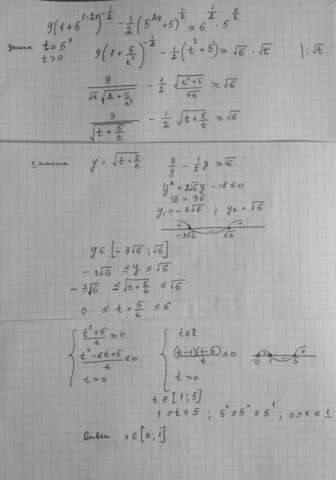 9(1+5^{1-2x})^{-\frac{1}{2}} - \frac{1}{2}(5^{2x}+5)^{\frac{1}{2}} ≥ 6^{\frac{1}{2}} · 5^{\frac{x}{2}}
замена t=5^x 9(1+\frac{5}{t^2})^{-\frac{1}{2}} - \frac{1}{2}(t^2+5) ≥ √6 · √t |:√t
t>0
\frac{9}{√t √{t+\frac{5}{t^2}}} - \frac{1}{2} \frac{√{t^2+5}}{√t} ≥ √6
\frac{9}{√{t+\frac{5}{t}}} - \frac{1}{2} √{t+\frac{5}{t}} ≥ √6
замена y = √{t+\frac{5}{t}} \frac{9}{y} - \frac{1}{2}y ≥ √6
y^2+2√6y-18≤0
D=96
y_1=-3√6 ; y_2=√6
+ - +
-3√6 √6
y∈[-3√6 ; √6]
-3√6 ≤ y ≤ √6
-3√6 ≤ √{t+\frac{5}{t}} ≤ √6
0 ≤ t+\frac{5}{t} ≤ 6
{ \frac{t^2+5}{t} ≥ 0 { t∈R
\frac{t^2-6t+5}{t} ≤ 0 \frac{(t-1)(t-5)}{t} ≤ 0 0 1 5
t>0 t>0
t∈[1;5]
1≤t≤5 ; 5^0≤5^x≤5^1 ; 0≤x≤1
Ответ x∈[0;1]